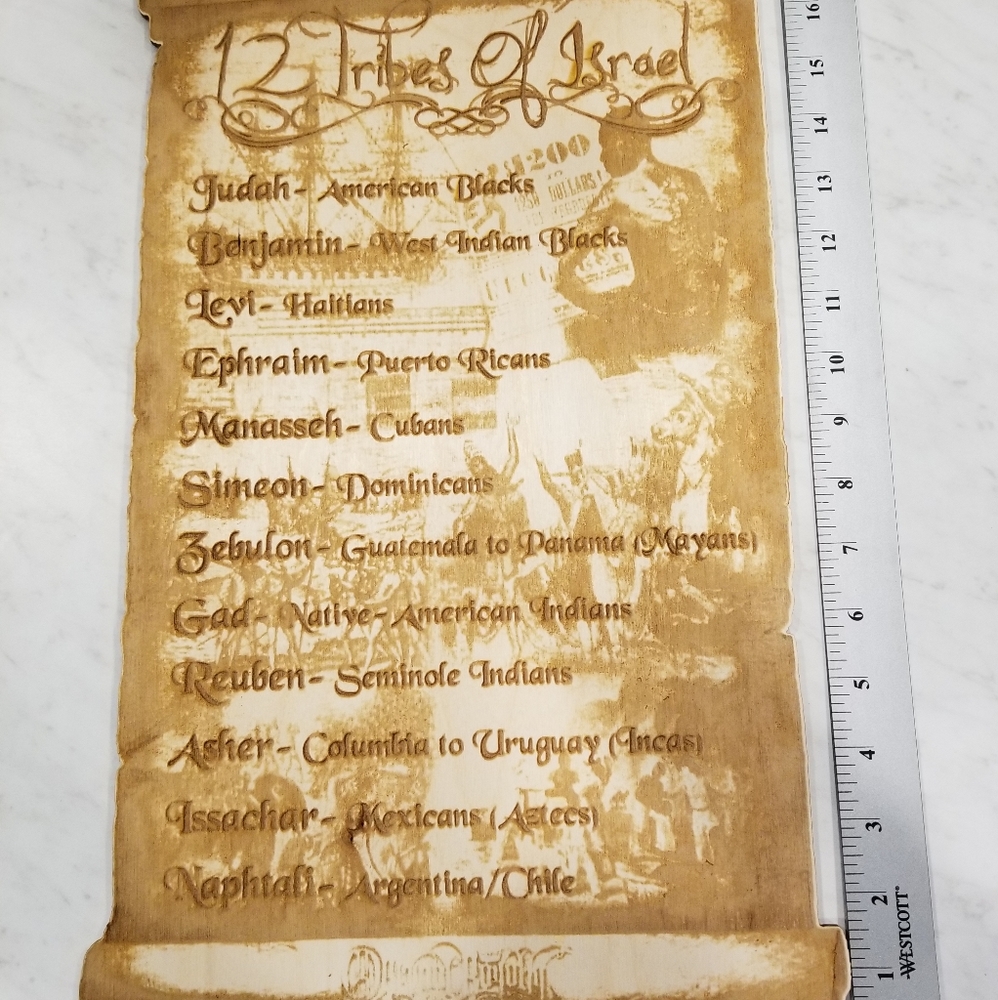 12 Tribes Of Israel
$1200
1250 DOLLARS!
Judah - American Blacks
Benjamin - West Indian Blacks
Levi - Haitians
Ephraim - Puerto Ricans
Manasseh - Cubans
Simeon - Dominicans
Zebulon - Guatemala to Panama (Mayans)
Gad - Native-American Indians
Reuben - Seminole Indians
Asher - Columbia to Uruguay (Incas)
Issachar - Mexicans (Aztecs)
Naphtali - Argentina/Chile
16
15
14
13
12
11
10
9
8
7
6
5
4
3
2
1
WESTCOTT